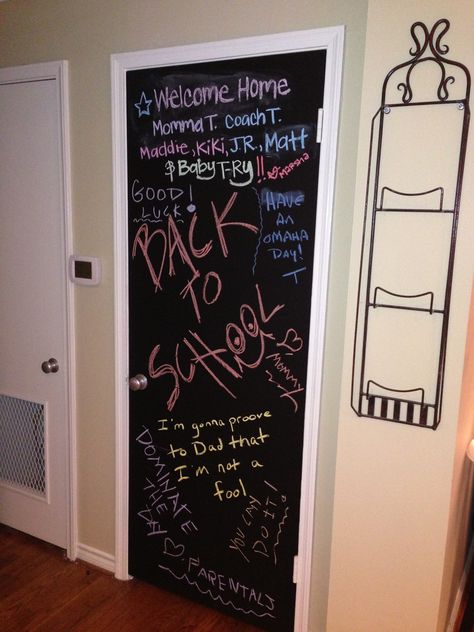 ☆ Welcome Home
Momma T. Coach T.
Maddie, KiKi, J.R., Matt
& Baby T-Ry !!
♡ Marsha
GOOD
LUCK!
HAVE
AN
OMAHA
DAY!
T
BACK
to
SCHOOL
♡
MOMMY
I'm gonna proove
to Dad that
I'm not a
fool.
DOMINATE
THE
YOU CAN
DO IT!
♡ PARENTALS